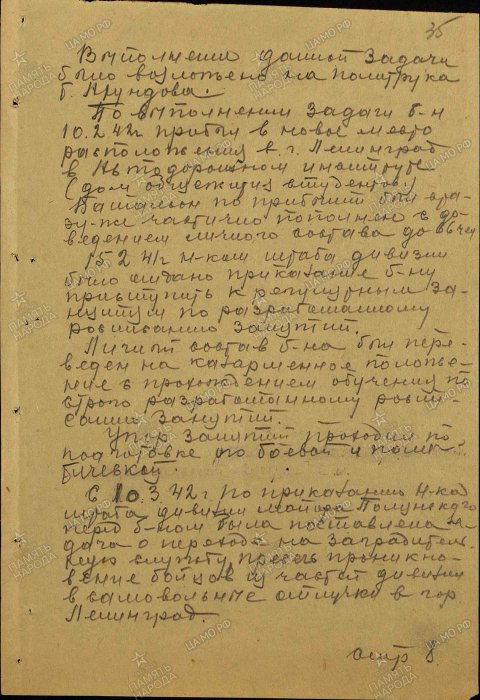 35
Выполнение данной задачи
было возложено на политрука
т. Арундова.
По выполнении задачи б-н
10.2.42г прибыл в новое место
расположения в г. Ленинград
в Автодорожном институте
(дом общежития студентов)
Батальон по прибытии был сра-
зу-же частично пополнен с до-
ведением личного состава до
15.2.42г н-ком штаба дивизии
было отдано приказание б-ну
приступить к регулярным за-
нятиям по разработанному
расписанию занятий.
Личный состав б-на был пере-
веден на казарменное положе-
ние с прохождением обучения по
строго разработанному распи-
санию занятий.
Упор занятий проходил по
подготовке по боевой и полит
С 10.3.42г по приказанию н-ка
штаба дивизии майора
перед б-ном была поставлена за-
дача о переходе на заградитель
ную службу, пресечь проникно-
вение бойцов из частей дивизии
в самовольные отлучки в гор
Ленинград.